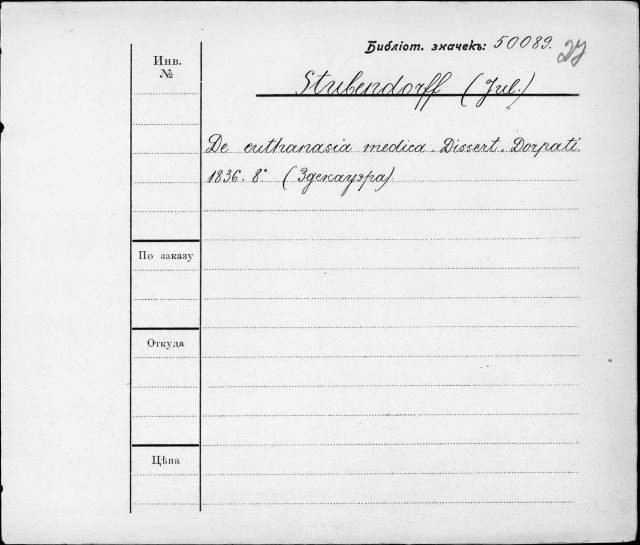 Библіот. значекъ: 50089. 27
Инв.
№
Stubendorff (Jul.)
De euthanasia medica. Dissert. Dorpati.
1836. 8° (Здекауэра).
По заказу
Откуда
Цѣна